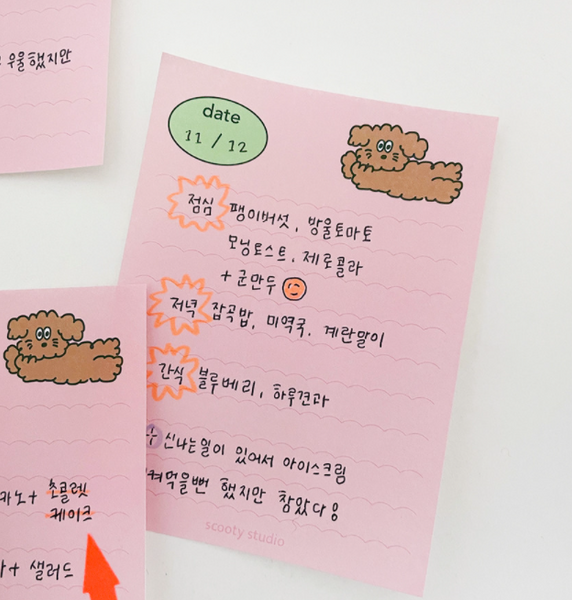 우울했지만
date
11 / 12
점심 팽이버섯, 방울토마토
모닝토스트, 제로콜라
+ 군만두
저녁 잡곡밥, 미역국, 계란말이
간식 블루베리, 하루견과
+ 신나는일이 있어서 아이스크림
먹을뻔 했지만 참았다용
scooty studio
카노+ 초콜렛
케이크
+ 샐러드